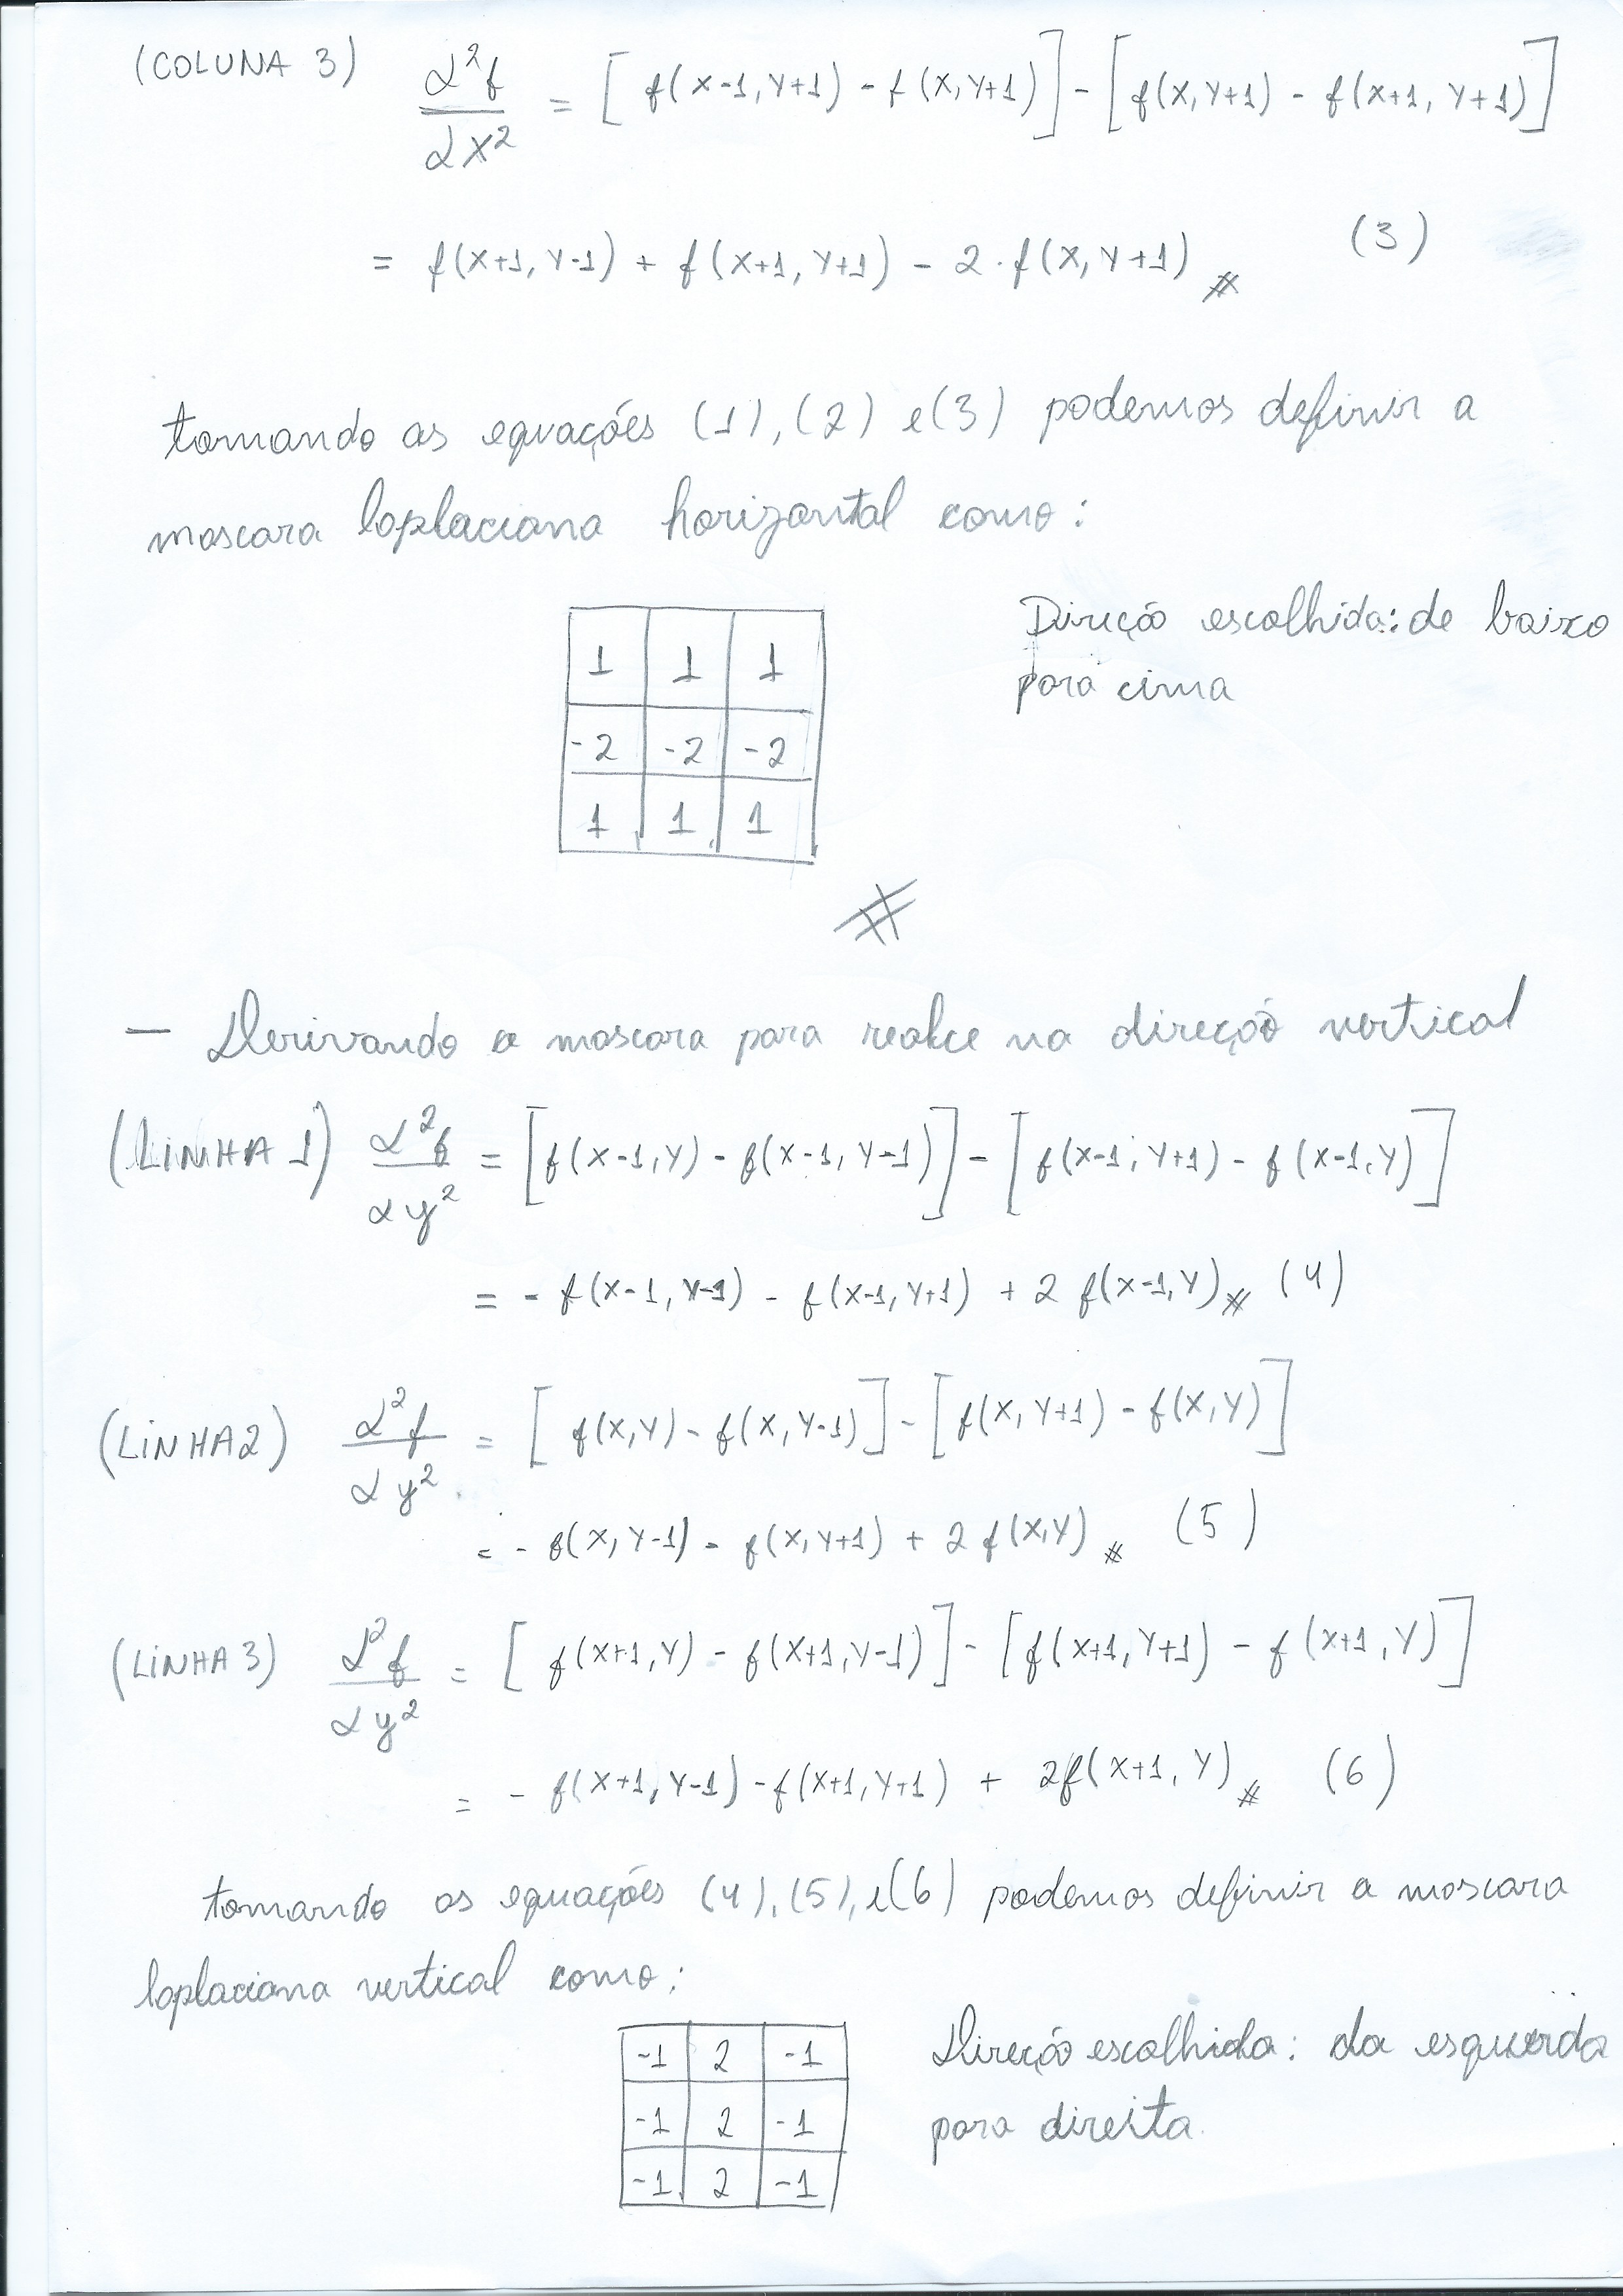 (COLUNA 3) ∂²f/∂x² = [f(x-1, y+1) - f(x, y+1)] - [f(x, y+1) - f(x+1, y+1)]
= f(x+1, y-1) + f(x+1, y+1) - 2·f(x, y+1) # (3)
tomando as equações (1), (2) e (3) podemos definir a
mascara laplaciana horizontal como:
Direção escolhida: de baixo
para cima
1 1 1
-2 -2 -2
1 1 1
#
— Derivando a mascara para realce na direção vertical
(LINHA 1) ∂²f/∂y² = [f(x-1, y) - f(x-1, y-1)] - [f(x-1, y+1) - f(x-1, y)]
= - f(x-1, y-1) - f(x-1, y+1) + 2 f(x-1, y) # (4)
(LINHA 2) ∂²f/∂y² = [f(x, y) - f(x, y-1)] - [f(x, y+1) - f(x, y)]
= - f(x, y-1) - f(x, y+1) + 2 f(x, y) # (5)
(LINHA 3) ∂²f/∂y² = [f(x+1, y) - f(x+1, y-1)] - [f(x+1, y+1) - f(x+1, y)]
= - f(x+1, y-1) - f(x+1, y+1) + 2f(x+1, y) # (6)
tomando as equações (4), (5), e (6) podemos definir a mascara
laplaciana vertical como:
Direção escolhida: da esquerda
para direita.
-1 2 -1
-1 2 -1
-1 2 -1